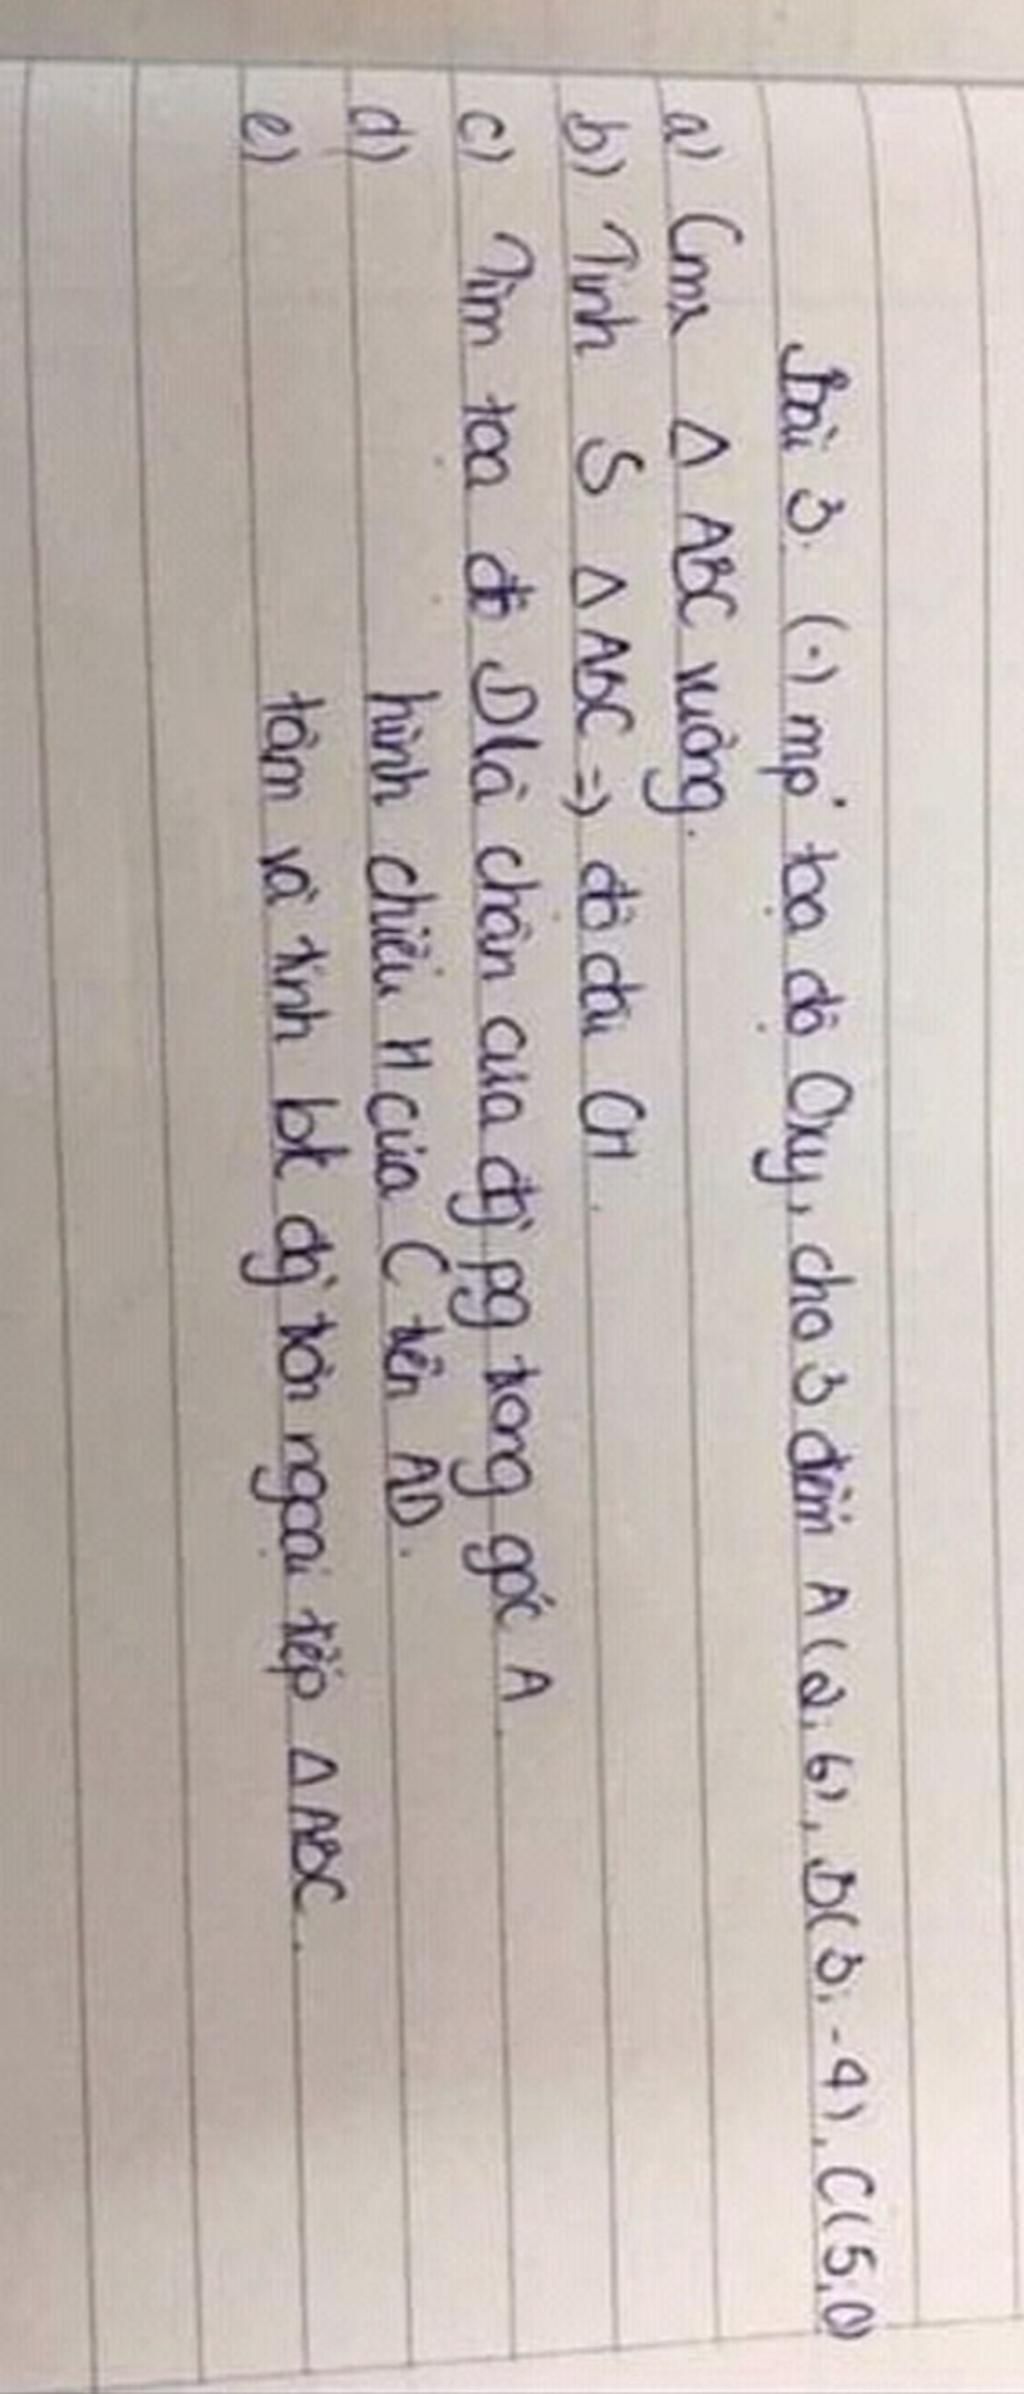 Bài 3. (.) mp' tọa độ Oxy, cho 3 điểm A(2; 6), B(3; -4), C(5; 0)
a) Cmr Δ ABC vuông.
b) Tính S Δ ABC => độ dài CH.
c) Tìm toạ độ D là chân của đg` pg trong góc A
d) hình chiếu H của C trên AD.
e) tâm và tính bk đg` tròn ngoại tiếp Δ ABC.